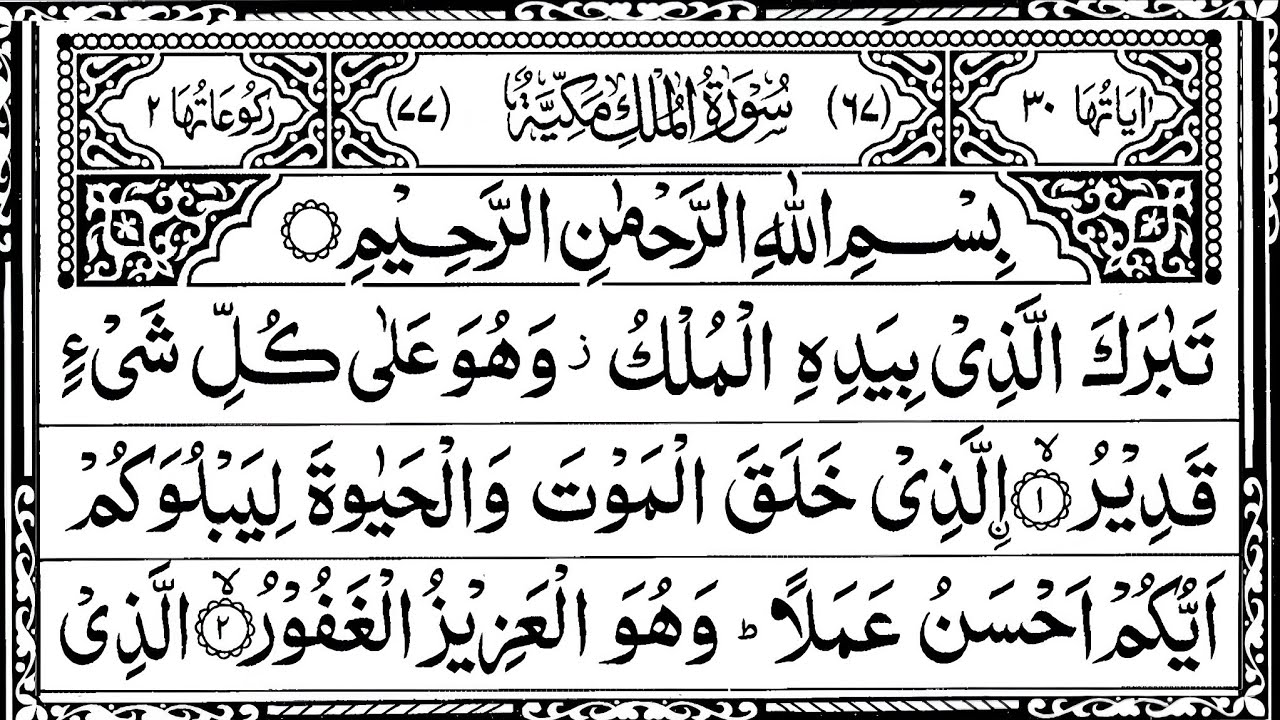 اٰیَاتُهَا ۳۰ (٦٧) سُوْرَةُ الْمُلْكِ مَكِّیَّةٌ (٧٧) رُكُوْعَاتُهَا ۲
بِسْمِ اللّٰهِ الرَّحْمٰنِ الرَّحِیْمِ ۝
تَبٰرَكَ الَّذِیْ بِیَدِهِ الْمُلْكُ ؗ وَهُوَ عَلٰی كُلِّ شَیْءٍ
قَدِیْرُ ۙ﴿۱﴾ ن ِ۟الَّذِیْ خَلَقَ الْمَوْتَ وَالْحَیٰوةَ لِیَبْلُوَكُمْ
اَیُّكُمْ اَحْسَنُ عَمَلًا ؕ وَهُوَ الْعَزِیْزُ الْغَفُوْرُ ۙ﴿۲﴾ الَّذِیْ